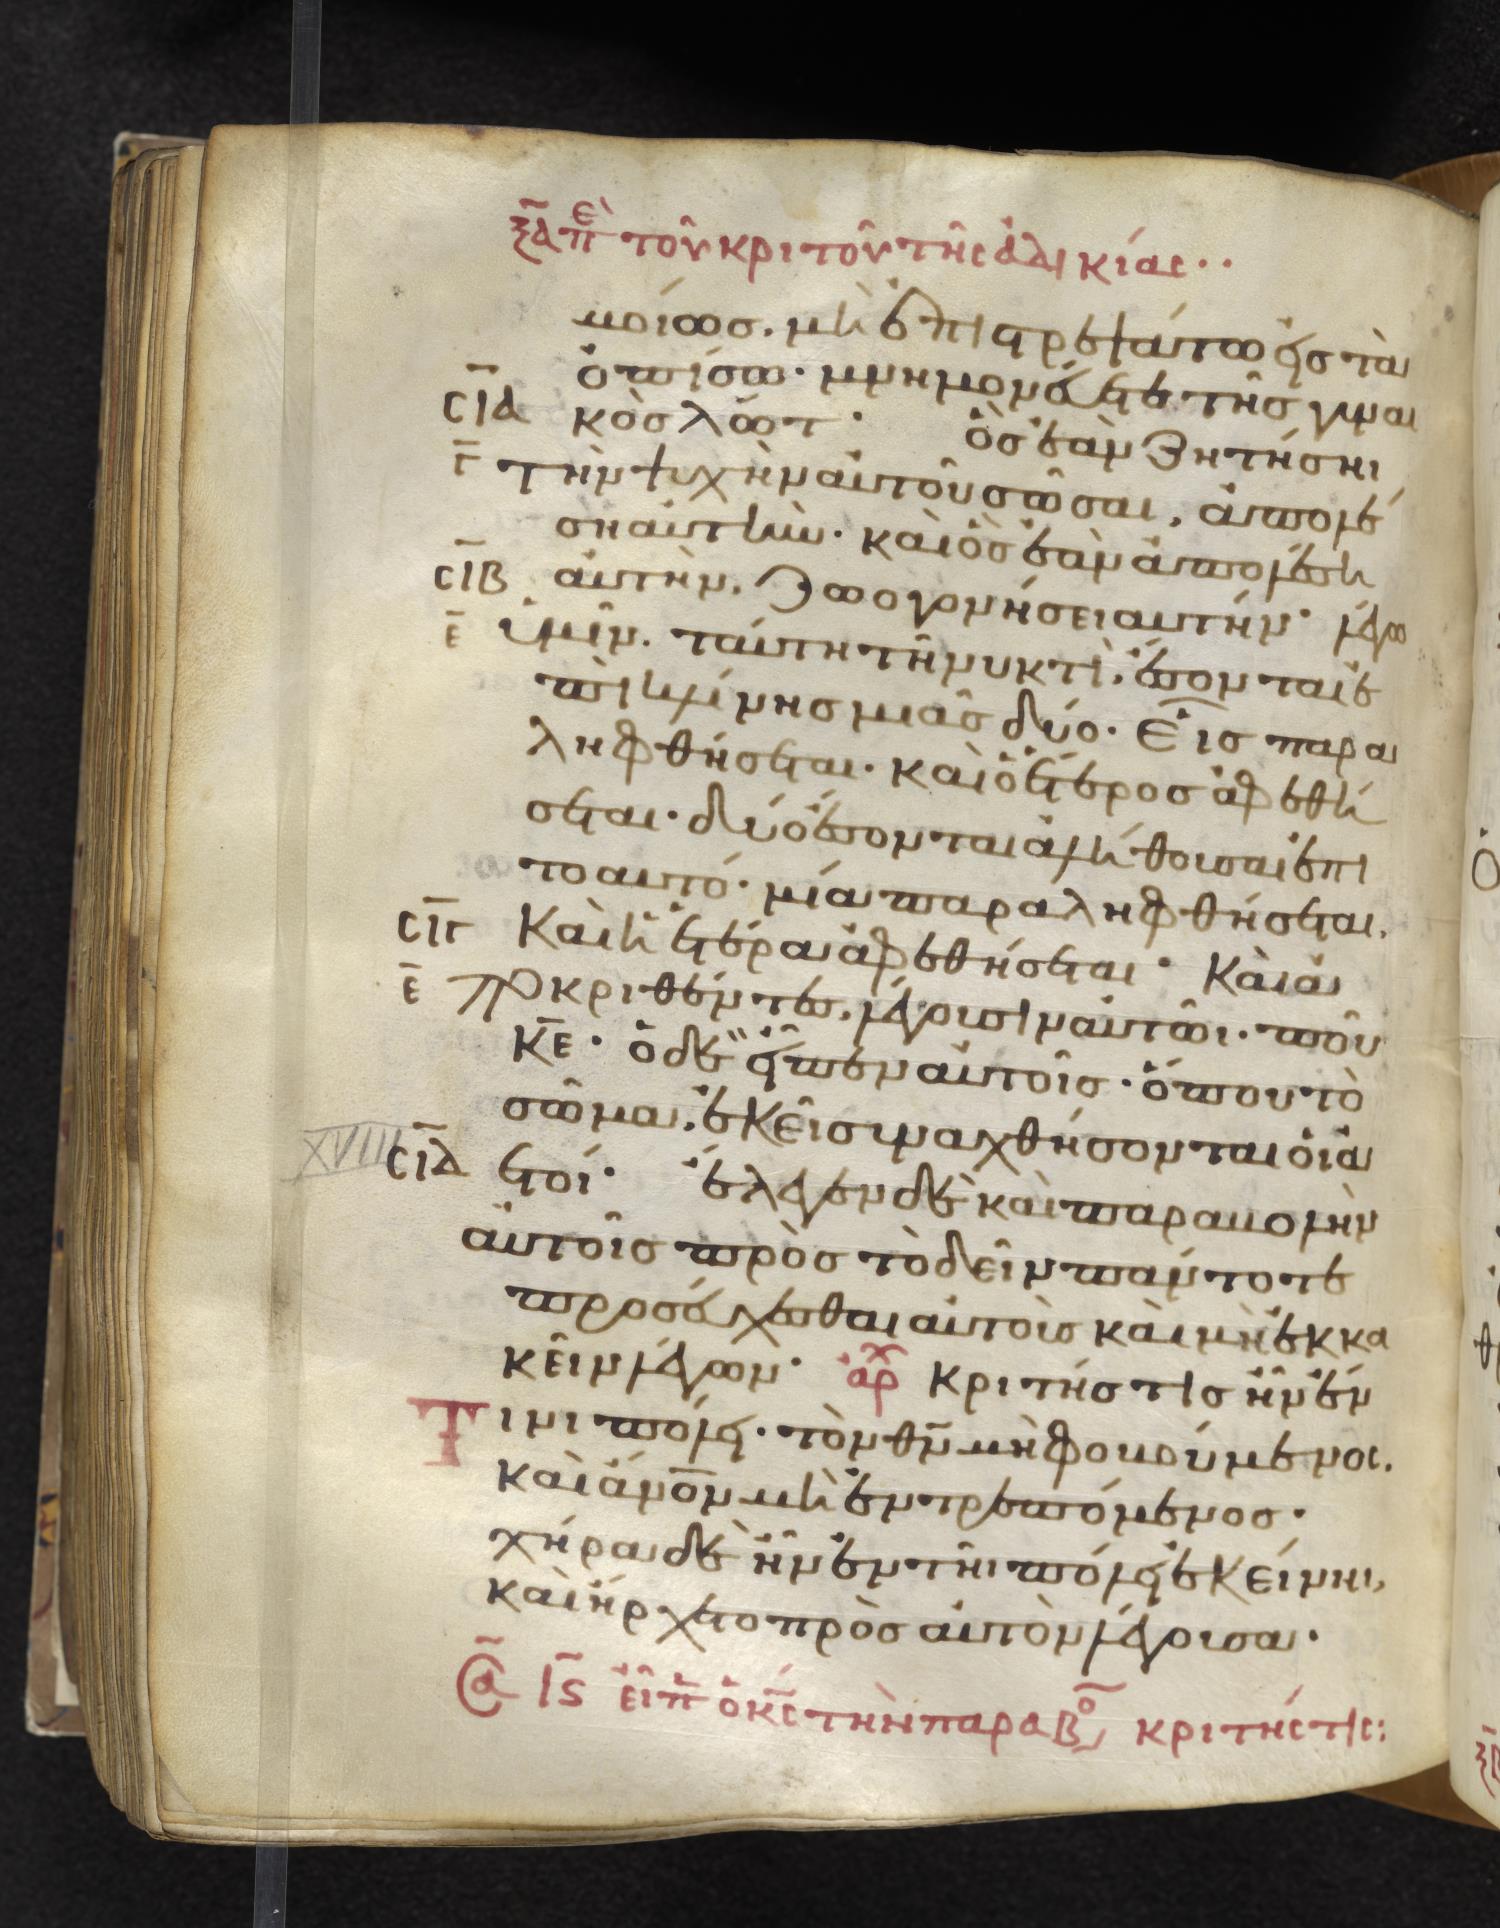 ξ̄α πὲ τοῦ κριτοῦ τῆς ἀδικίας··
μοίως. μὴ ἐπιστρεψάτω εἰς τὰ
ὀπίσω· μνημονεύετε τῆς γυναι
σ̄ια κὸς λώτ· ὃς ἐὰν ζητήσηι
γ̄ τὴν ψυχὴν αὐτοῦ σῶσαι, ἀπολέ
σῃ αὐτὴν· καὶ ὃς ἐὰν ἀπολέσῃ
σ̄ιβ αὐτὴν, ζωογονήσει αυτήν· λέγω
ε̄ ὑμῖν. ταύτη τῆ νυκτὶ, ἔσονται ἐ
πὶ κλίνης μιᾶς δύο· εἷς παρα
ληφθήσεται· καὶ ὁ ἕτερος ἀφεθή
σεται· δύο ἔσονται ἀλήθουσαι ἐπι
τοαυτό· μία παραληφθήσεται.
σ̄ιγ Καὶ ἡ ἑτέρα ἀφεθήσεται· Καὶ ἀ
ε̄ ποκριθέντες, λέγουσιν αὐτῶι· ποῦ
κ̄ε· ὁ δὲ εἶπεν αὐτοῖς· ὅπου τὸ
σῶμα, ἐκεῖ συναχθήσονται οἱ ἀ
σ̄ιδ ετοί· ἔλεγεν δὲ καὶ παραβολὴν
αὐτοῖς πρὸς τὸ δεῖν πάντοτε
προσεύχεσθαι αὐτοὺς καὶ μὴ ἐκκα
κεῖν λέγων· ἀρχ κριτής τις ἦν ἔν
Τινι πόλει· τὸν θ̄ν μὴ φοβούμενος.
καὶ ἄνο̄ν μὴ ἐντρεπόμενος·
χήρα δὲ ἦν ἐν τῆι πόλει ἐκείνηι,
καὶ ἤρχετο πρὸς αὐτὸν λέγουσα·
ις̄ εἶπ ὁ κ̄ς τὴν παραβο κριτής τις:
XVIII